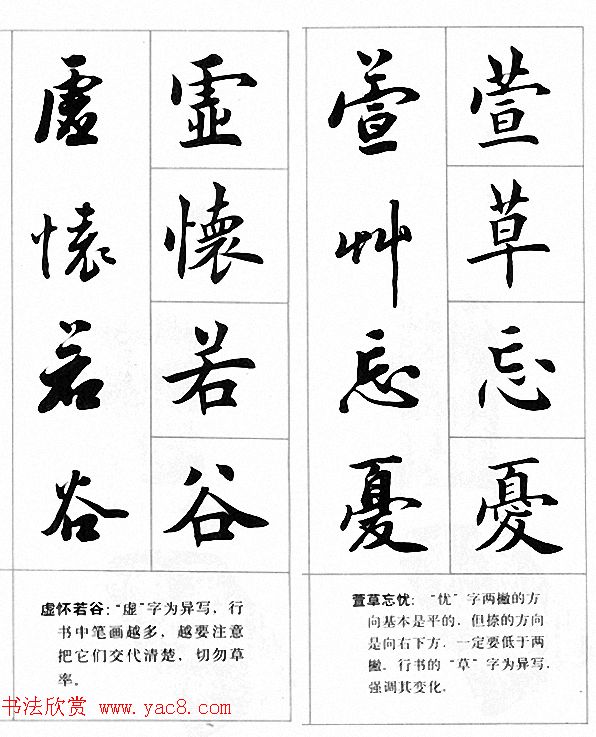 萱草忘憂
萱艸忘憂
虛懷若谷
虛懷若谷
萱草忘忧："忧"字两撇的方
向基本是平的，但捺的方向
是向右下方，一定要低于两
撇。行书的"草"字为异写，
强调其变化。
虚怀若谷："虚"字为异写，行
书中笔画越多，越要注意
把它们交代清楚，切勿草
率。
书法欣赏 www.yac8.com